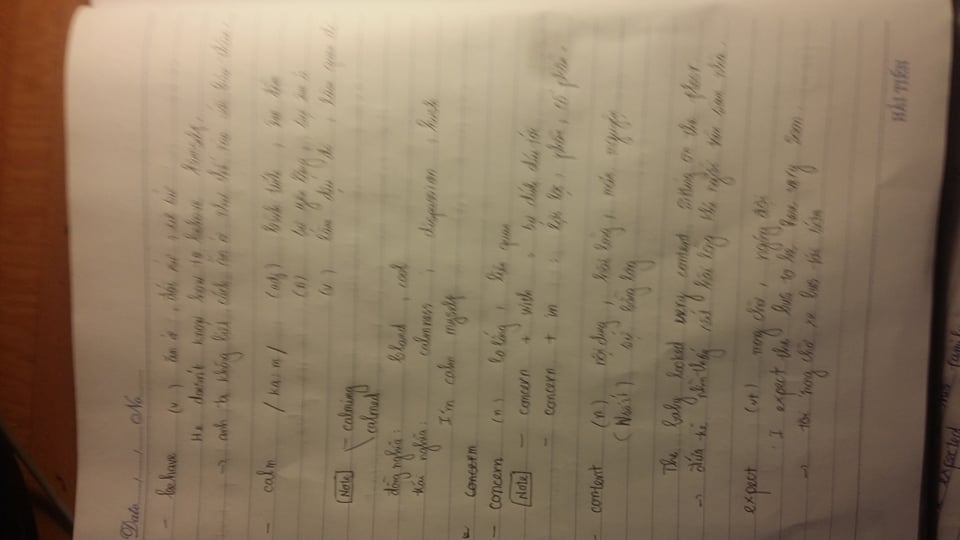 Date ...../...../..... No.
- behave (v) ăn ở, đối xử, cư xử
He doesn't know how to behave himself.
→ anh ta không biết cách ăn ở như thế nào
- calm /ka:m/ (adj) bình tĩnh,
(n) sự yên lặng, sự
(v) làm dịu đi, làm
Note - calming
\ calmed
đồng nghĩa: bland, cool
trái nghĩa: calmness,
I'm calm myself
concern
- concern (n) lo lắng, liên quan
Note - concern + with: sự dính dáng tới
- concern + in: lợi lộc, phần, cổ phần.
- content (n) nội dung, hài lòng, mãn nguyện
sự bằng lòng
The baby looked very content sitting on the floor
→ đứa bé nhìn thấy rất hài lòng khi ngồi trên sàn nhà.
expect (vt) mong chờ, ngóng đợi
. I expect the bus to be here very soon.
→ tôi mong chờ xe bus tới sớm
HẢI TIẾN
expected